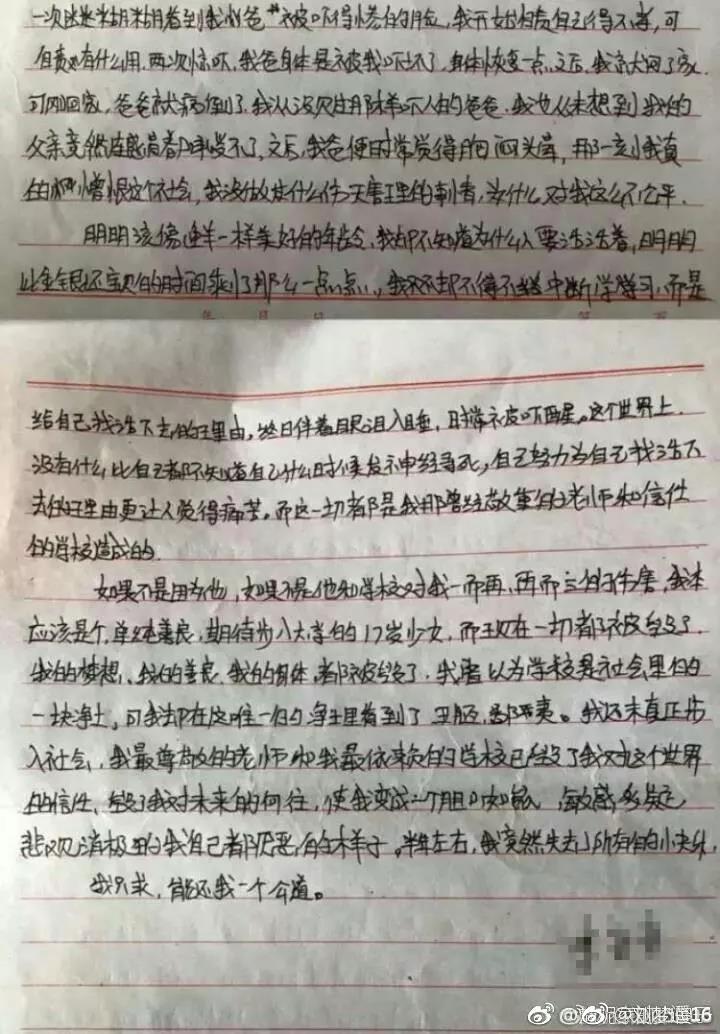 一次迷迷糊糊看到我爸爸被吓得惨白的脸，我开始自责自己得不孝，可
自责又有什么用，两次惊吓，我爸身体是被我吓坏了，身体恢复一点之后，我就大闹了家，
可刚回家，爸爸就病倒了，我从没见过那样吓人的爸爸，我也从未想到我的
父亲竟然连感冒都承受不了，之后，我爸便时常觉得胸闷头晕，那一刻我真
的憎恨这个社会，我没做过什么伤天害理的事情，为什么对我这么不公平。
明明该像鲜花一样美好的年龄，我却不知道为什么要活活着，明明
比金银还宝贵的时间剩了那么一点点，我却不得不中断学习，而是
给自己找活下去的理由，终日伴着眼泪入睡，时常被吓醒。这个世界上
没有什么比自己都不知道自己什么时候发神经寻死，自己努力为自己找活下
去的理由更让人觉得痛苦。而这一切都是我那曾经敬重的老师和信任
的学校造成的
如果不是因为他，如果不是他和学校对我一而再，再而三的伤害，我本
应该是个单纯善良，期待步入大学的17岁少女，而现在一切都被毁了
我的梦想，我的善良，我的身体，都被毁了，我曾以为学校是社会里的
一块净土，可我却在这唯一的净土里看到了丑陋，鄙夷。我还未真正步
入社会，我最尊敬的老师和我最依赖的学校已毁了我对这个世界
的信任，毁了我对未来的向往，使我变成一个胆小如鼠，敏感多疑
悲观消极的我自己都厌恶的样子。半年左右，我竟然失去了所有的小夹纸
我只求，能还我一个公道。